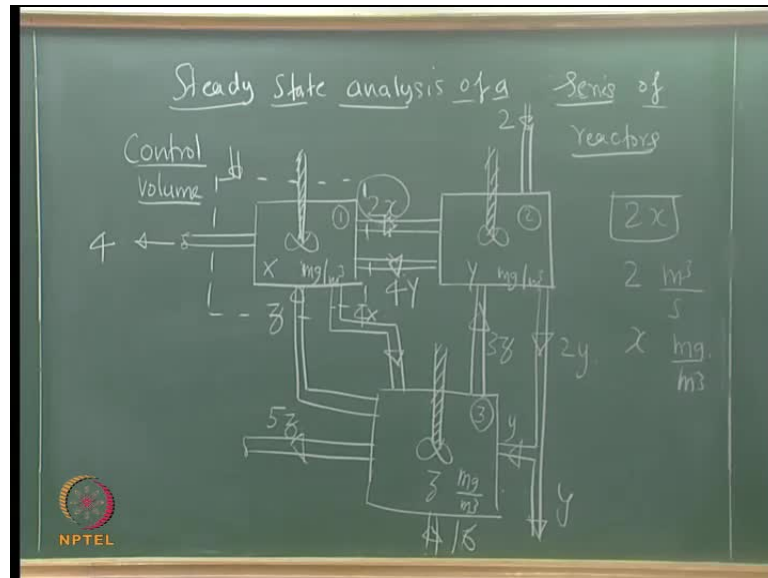 Steady State analysis of a Series of
reactors
Control
Volume
2
2x
①
②
2x
4
x mg/m³
4y
y mg/m³
2 m³/s
z
4x
3z
2y
x mg/m³
③
5z
y
z mg/m³
y
NPTEL